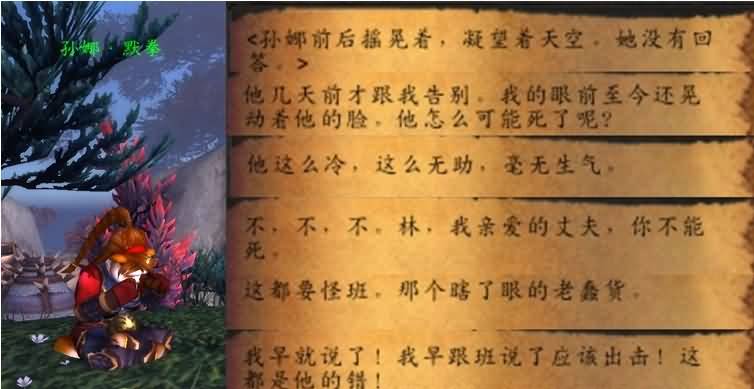 孙娜·默拳
<孙娜前后摇晃着，凝望着天空。她没有回
答。>
他几天前才跟我告别。我的眼前至今还晃
动着他的脸。他怎么可能死了呢?
他这么冷，这么无助，毫无生气。
不，不，不。林，我亲爱的丈夫，你不能
死。
这都要怪班。那个瞎了眼的老蠢货。
我早就说了！我早跟班说了应该出击！这
都是他的错！